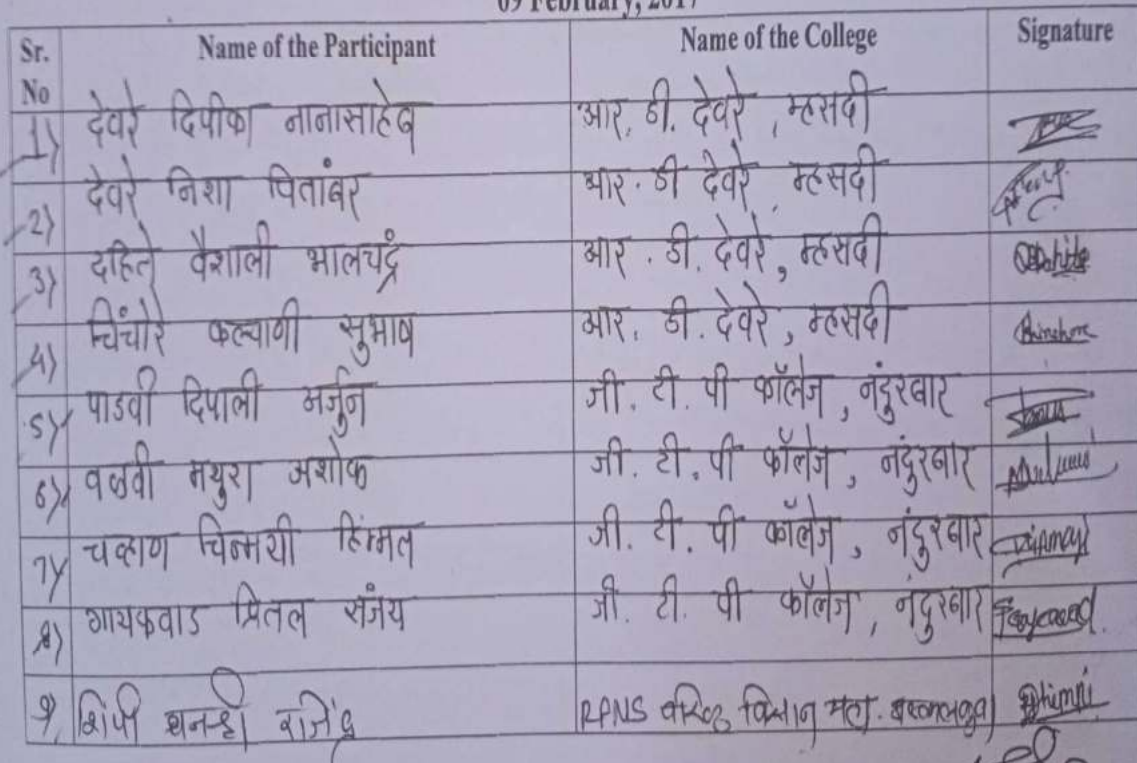 09 February, 2017
Sr. No Name of the Participant Name of the College Signature
1) देवरे दिपीका नानासाहेब आर. डी. देवरे, म्हसदी
2) देवरे निशा पितांबर आर. डी देवरे, म्हसदी
3) दहिते वैशाली भालचंद्र आर. डी. देवरे, म्हसदी
4) चिंचोरे कल्याणी सुभाष आर. डी. देवरे, म्हसदी
5) पाडवी दिपाली अर्जुन जी. टी. पी कॉलेज, नंदुरबार
6) वळवी मयुरा अशोक जी. टी. पी कॉलेज, नंदुरबार
7) चव्हाण चिन्मयी हिंम्मत जी. टी. पी कॉलेज, नंदुरबार
8) गायकवाड प्रितल संजय जी. टी. पी कॉलेज, नंदुरबार
9) शिंपी धनश्री राजेंद्र RPNS वरिष्ठ विज्ञान महा.